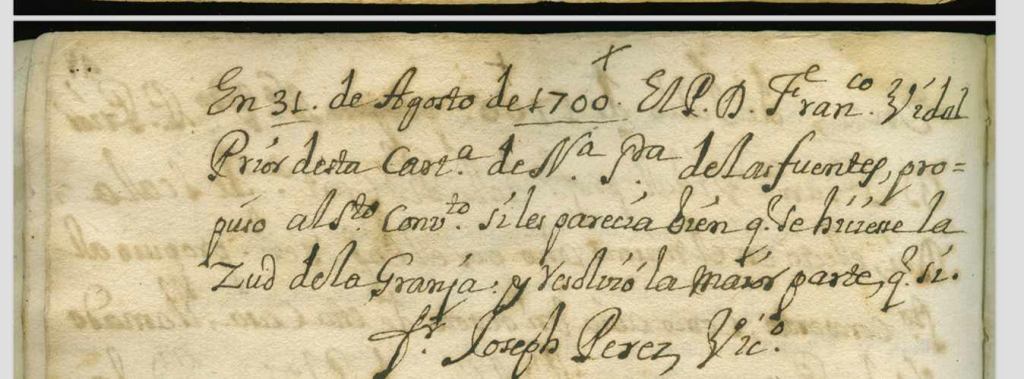 En 31. de Agosto de 1700. El P. D. Fran.co Vidal
Prior desta Cart.a de N.a S.ra de las fuentes, pro=
puso al S.to Conv.to si les parecia bien q. se hiciesse la
Zud de la Granja: y resolvió la maior parte, q. si.
fr. Joseph Perez, Vic.o